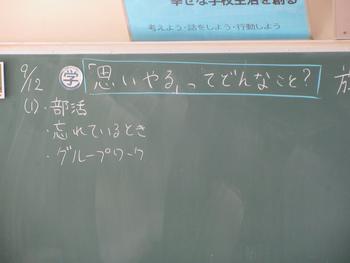 幸せな学校生活を創る
考えよう・話をしよう・行動しよう
9/12 学 「思いやる」ってどんなこと?
(1)・部活
・忘れているとき
・グループワーク